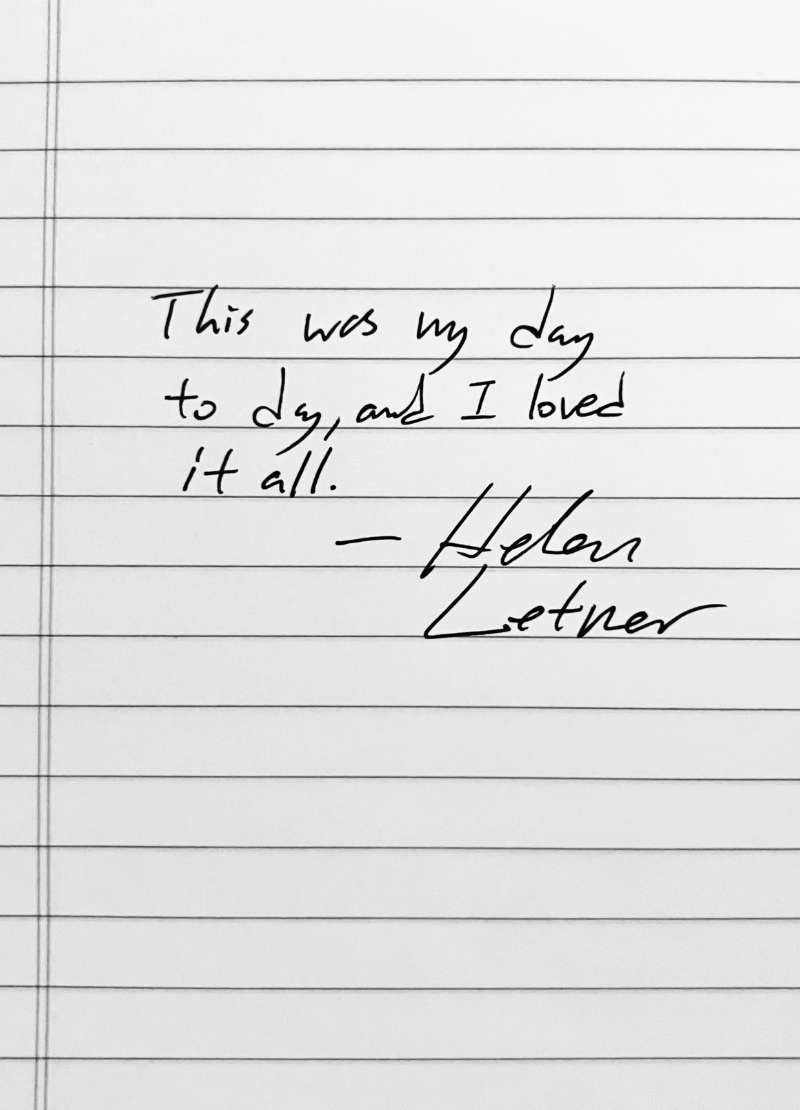 This was my day
to day, and I loved
it all.
— Helen
Letner